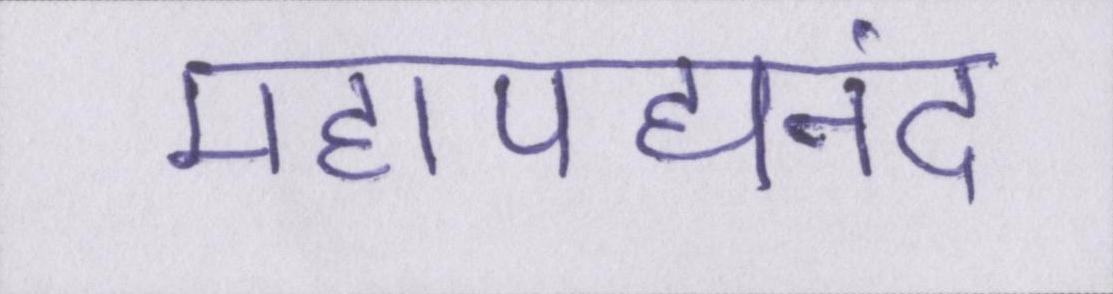 महापद्यनंद